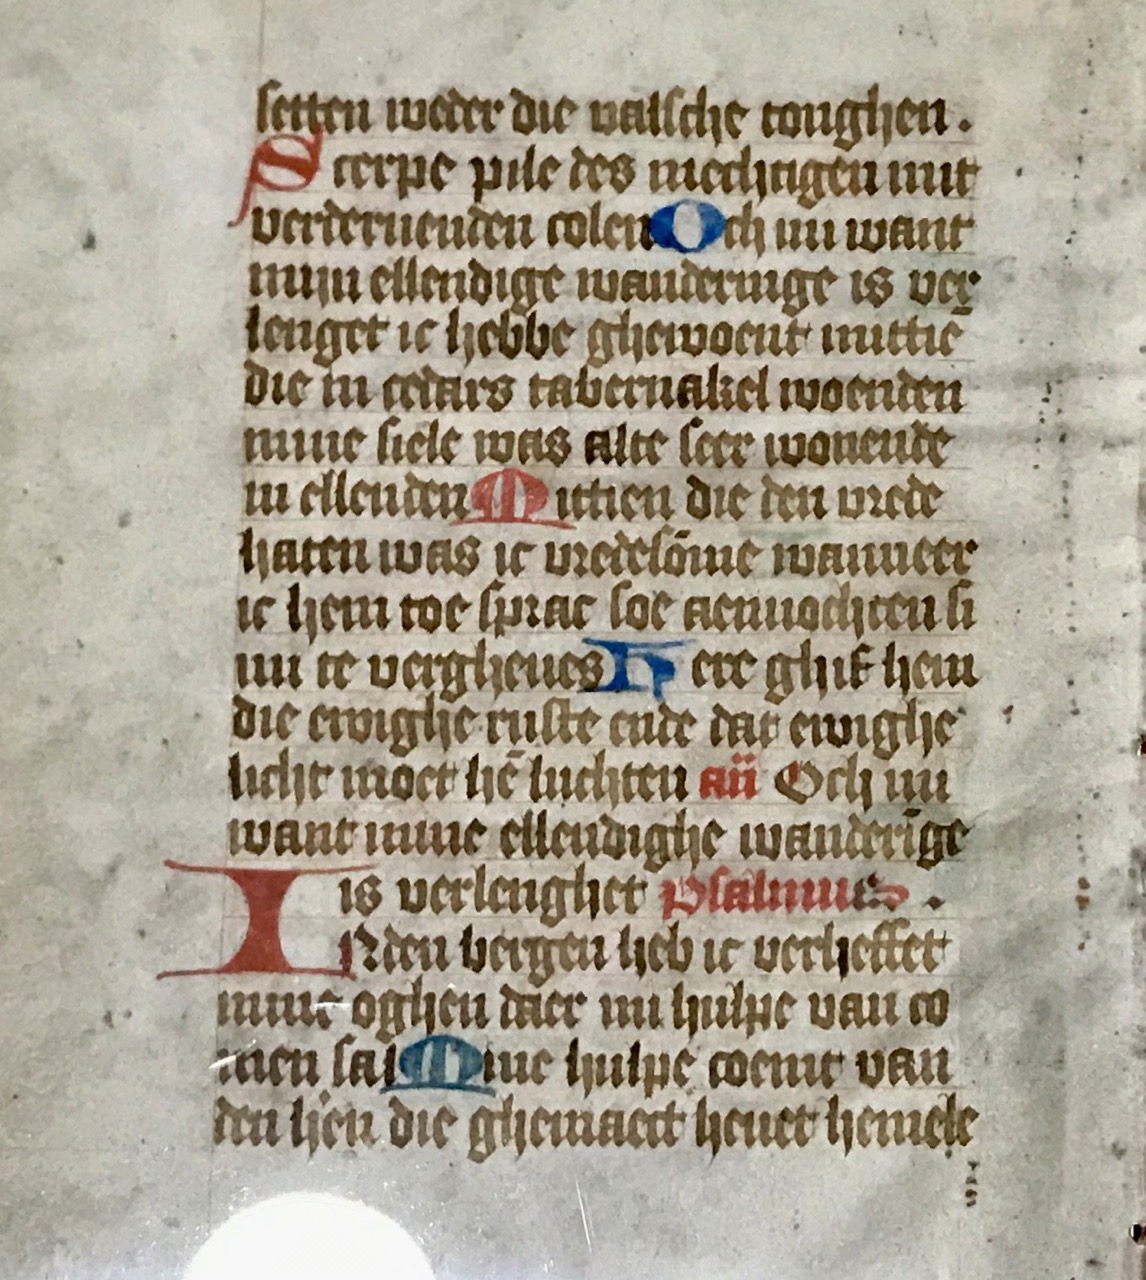 setten weder die valsche tonghen .
Scerpe pile des mechtigen mit
verderuenden colen Och mi want
mijn ellendige wanderinge is ver
lenget ic hebbe ghewoent mittiē
die in cedars tabernakel woenden
mine siele was alte seer wonende
in ellenden Mittien die den vrede
haten was ic vredesōme wanneer
ic hem toe sprac soe aenuochten si
mi te vergheues Here ghif hem
die ewighe ruste ende dat ewighe
licht moet hē luchten an̄ Och mi
want mine ellendighe wanderīge
is verlenghet psalmus .
INden bergen heb ic verheffet
mine oghen daer mi hulpe van co
men sal Mine hulpe coemt van
den hēn die ghemaect heuet hemele